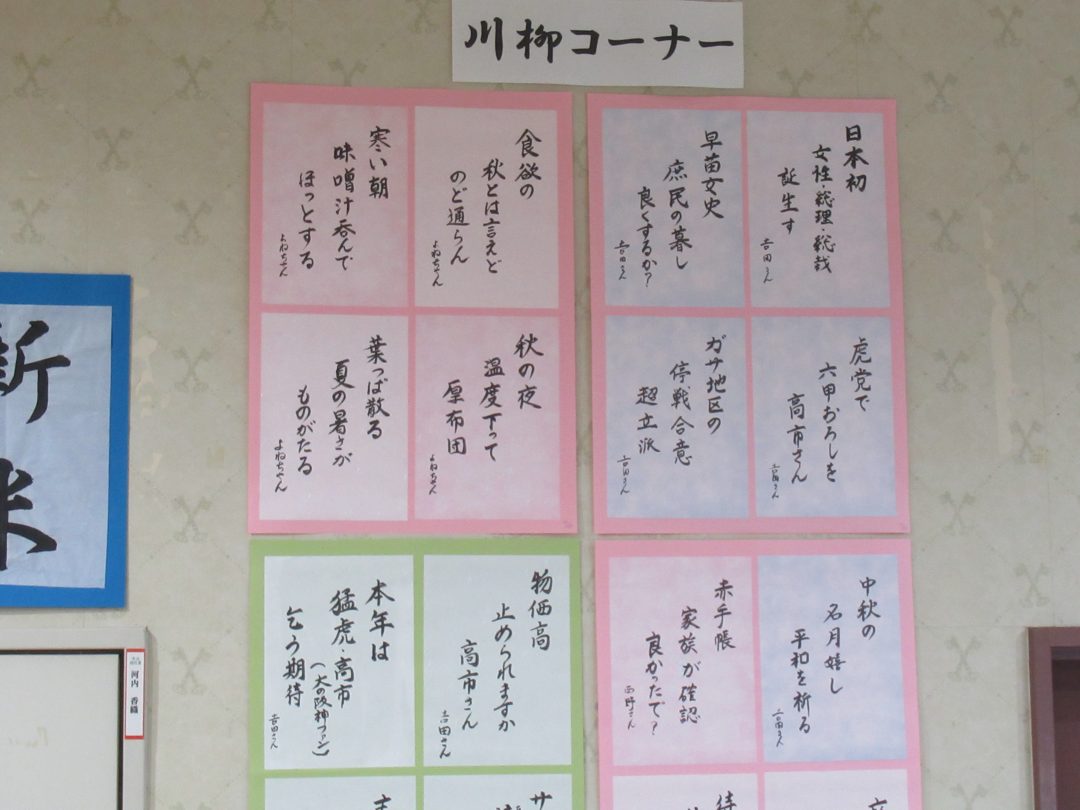 川柳コーナー
日本初
女性・総理・総哉
誕生す
吉田さん
早苗女史
庶民の暮し
良くするか?
吉田さん
虎党で
六甲おろしを
高市さん
吉田さん
ガザ地区の
停戦合意
超立派
吉田さん
食欲の
秋とは言えど
のど通らん
よねちゃん
寒い朝
味噌汁呑んで
ほっとする
よねちゃん
秋の夜
温度下って
厚布団
よねちゃん
葉っぱ散る
夏の暑さが
ものがたる
よねちゃん
中秋の
名月嬉し
平和を祈る
吉田さん
赤手帳
家族が確認
良かったで?
西野さん
物価高
止められますか
高市さん
吉田さん
本年は
猛虎・高市
(大の阪神ファン)
乞う期待
吉田さん
新米
河内 香織